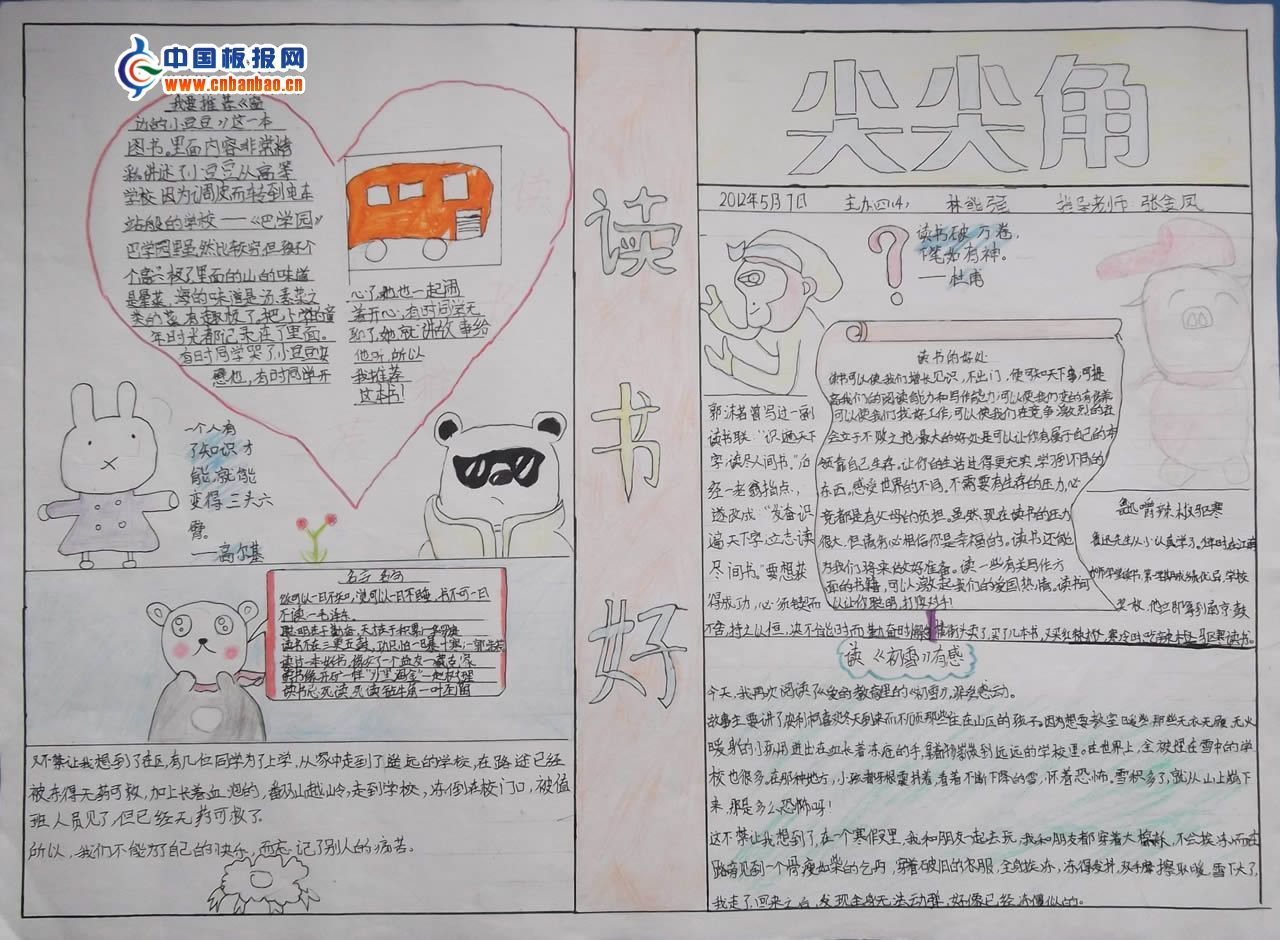 中国板报网
www.cnbanbao.cn
我要推荐《窗
边的小豆豆》这一本
图书。里面内容非常精
彩,讲述了小豆豆从高等
学校因为调皮而转到电车
站般的学校——《巴学园》
巴学园里虽然比较穷,但孩子个
个高兴极了里面的山的味道
是荤菜,海的味道是汤,素菜之
类的菜,有趣极了。把上学的童
年时光都记录在了里面。
有时同学哭了,小豆豆安
慰他,有时同学开
心了她也一起闹
着开心,有时同学无
聊了,她就讲故事给
他听,所以
我推荐
这本书!
一个人有
了知识才
能,就能
变得三头六
臂。
——高尔基
名言名句
饭可以一日不吃,觉可以一日不睡,书不可一日
不读—毛泽东
读书忌死读,死读钻牛角—叶圣陶
又不禁让我想到了在区,有几位同学为了上学,从家中走到了遥远的学校,在路途已经
被冻得无药可救,加上长着血泡的,翻山越岭,走到学校,冻倒在校门口,被值
班人员见了,但已经无药可救了。
所以,我们不能为了自己的快乐,而忘记了别人的痛苦。
读
书
好
尖尖角
2012年5月7日 主办四(4) 林 指导老师 张金凤
读书破万卷,
下笔如有神。
—杜甫
读书的好处
读书可以使我们增长见识,不出门,便可知天下事,可提
高我们的阅读能力和写作能力,可以使我们变的有修养
可以使我们找好工作,可以使我们在竞争激烈的社
会立于不败之地,最大的好处是可以让你有属于自己的本
领靠自己生存。让你的生活过得更充实,学习到不同的
东西。感受世界的不同。不需要有生存的压力,必
竟都是有父母的负担。虽然现在读书的压力
很大,但请务必相信你是幸福的。读书还能
为我们将来做好准备。读一些有关写作方
面的书籍,可以激起我们的爱国热情。读书可
以让你聪明,打败对手!
郭沫若曾写过一副
读书联:"识遍天下
字,读尽人间书。"后
经一老翁指点,
遂改成"发奋识
遍天下字,立志读
尽人间书。"要想获
得成功,必须锲而
不舍,持之以恒,决不能时而勤奋时而
鲁迅嚼辣椒驱寒
鲁迅先生从小认真学习。少年时,在江南
水师学堂读书,第一学期成绩优异,学校
奖一枚,他立即拿到南京鼓
楼街头卖了,买了几本书,又买红辣椒,寒冷时,吃辣椒驱寒读书。
读《初雪》有感
今天,我再次阅读了《爱的教育》里的《初雪》,深受感动。
校也很多,在那种地方,小孩都很震抖着,看着不断下降的雪,怀着恐怖。雪积多了,就从山上崩下
来,那是多么恐怖呀!
这不禁让我想到了,在一个寒假里,我和朋友一起去玩,我和朋友都穿着大棉袄,不会挨冻,而在
路旁见到一个骨瘦如柴的乞丐,穿着破旧的衣服,全身挨冻,冻得发抖,双手摩擦取暖,雪下大了,
我走了,回来之后,发现全身无法动弹,好像已经冻僵似的。